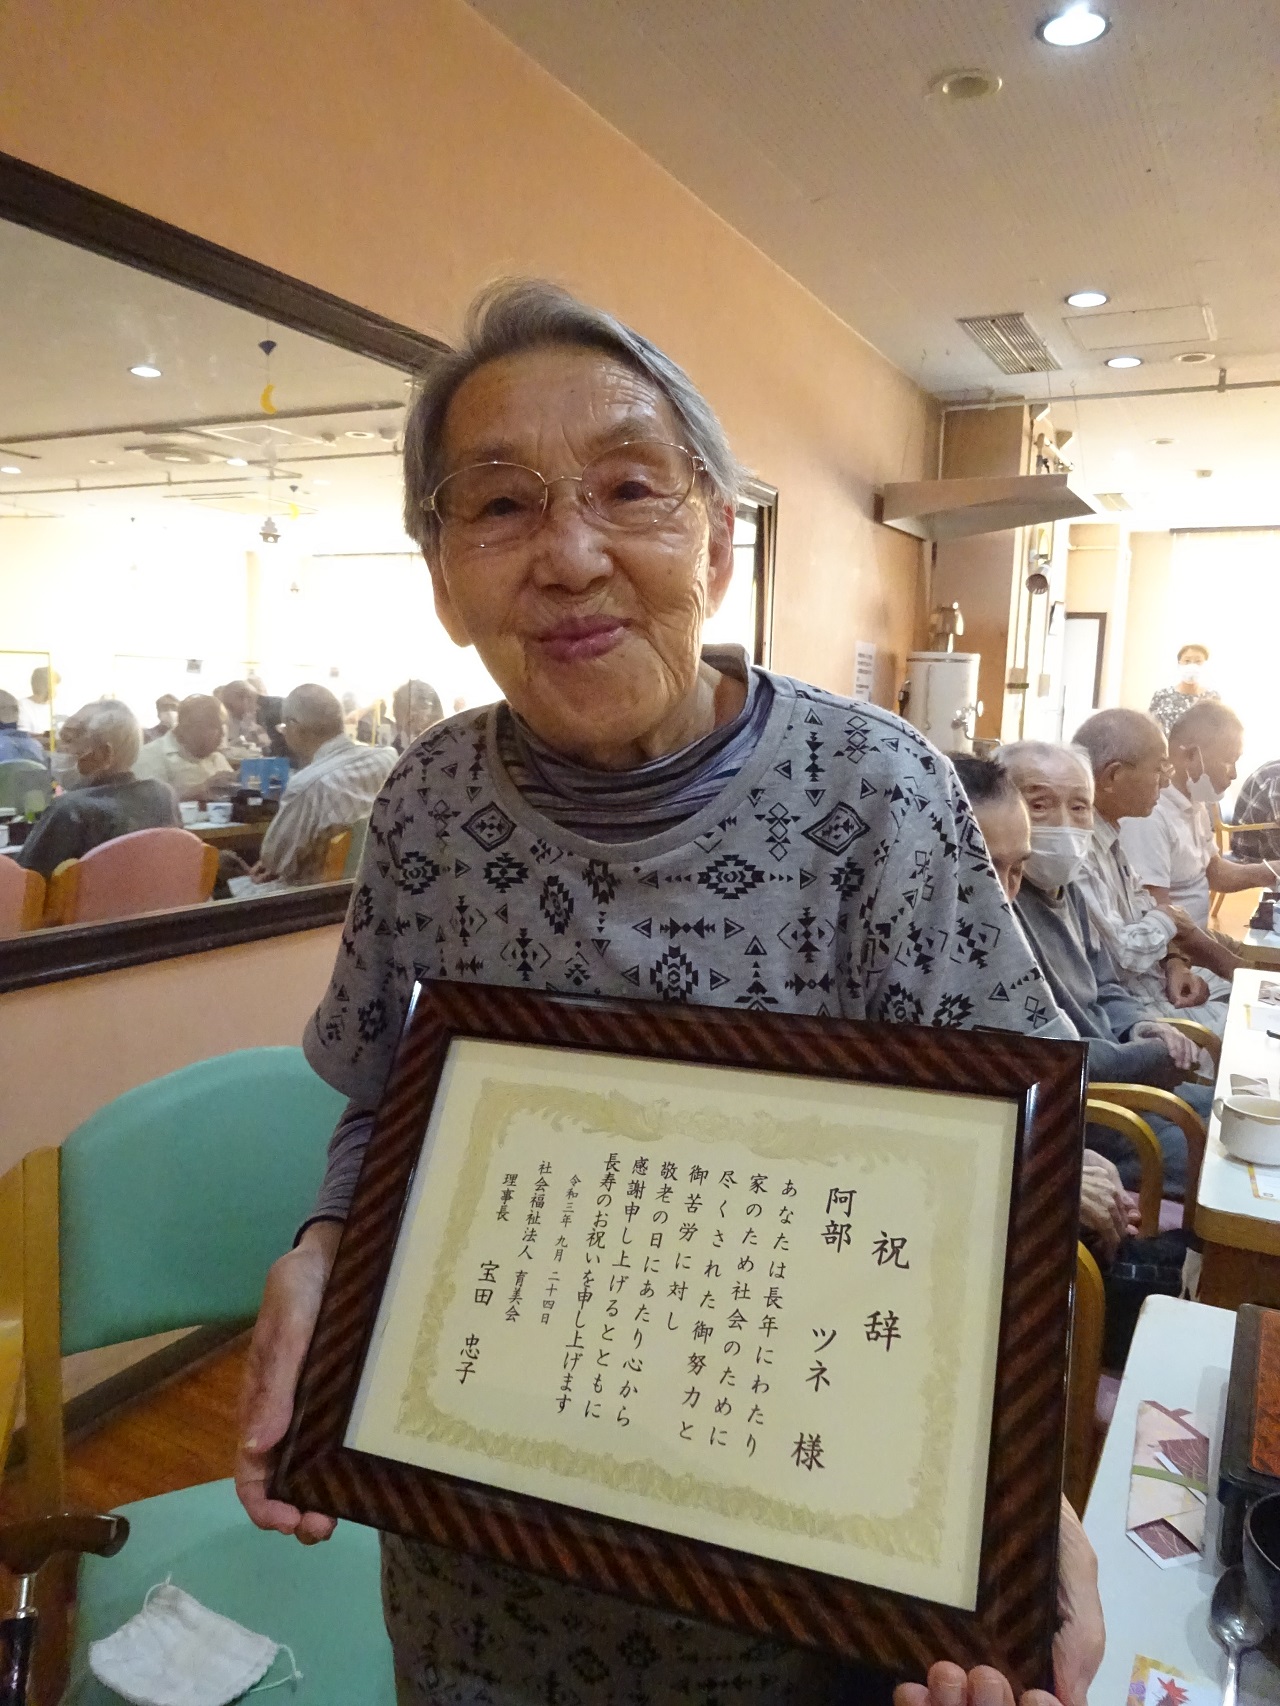 祝辞
阿部 ツネ 様
あなたは長年にわたり
家のため社会のために
尽くされた御努力と
御苦労に対し
敬老の日にあたり心から
感謝申し上げるとともに
長寿のお祝いを申し上げます
令和三年 九月 二十四日
社会福祉法人 育美会
理事長 宝田 忠子